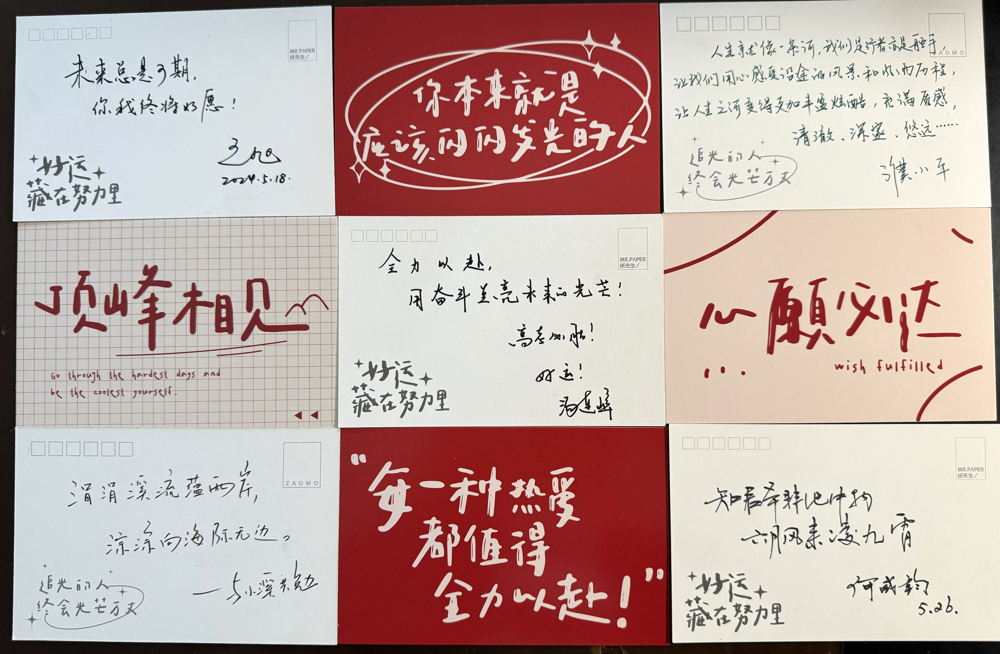 未来总是可期，
你我终将如愿！
2024.5.18.
好运
藏在努力里
MR.PAPER
纸先生/
你本来就是
应该闪闪发光的人
人生就像一条河，我们是行者亦是舵手，
让我们用心感受沿途的风景和风雨历程，
让人生之河变得更加丰盈炫酷，充满质感，
清澈、深邃、悠远……
追光的人
终会光芒万丈
ZAOMO
顶峰相见
Go through the hardest days and
be the coolest yourself.
全力以赴，
用奋斗点亮未来的光芒！
高考加油！
好运！
好运
藏在努力里
MR.PAPER
纸先生/
心愿必达
wish fulfilled
涓涓溪流蕴两岸，
淙淙向海际无边。
——与小溪共勉
追光的人
终会光芒万丈
ZAOMO
“每一种热爱
都值得
全力以赴！”
知君本非池中物
六月风来凌九霄
何威
5.26.
好运
藏在努力里
MR.PAPER
纸先生/